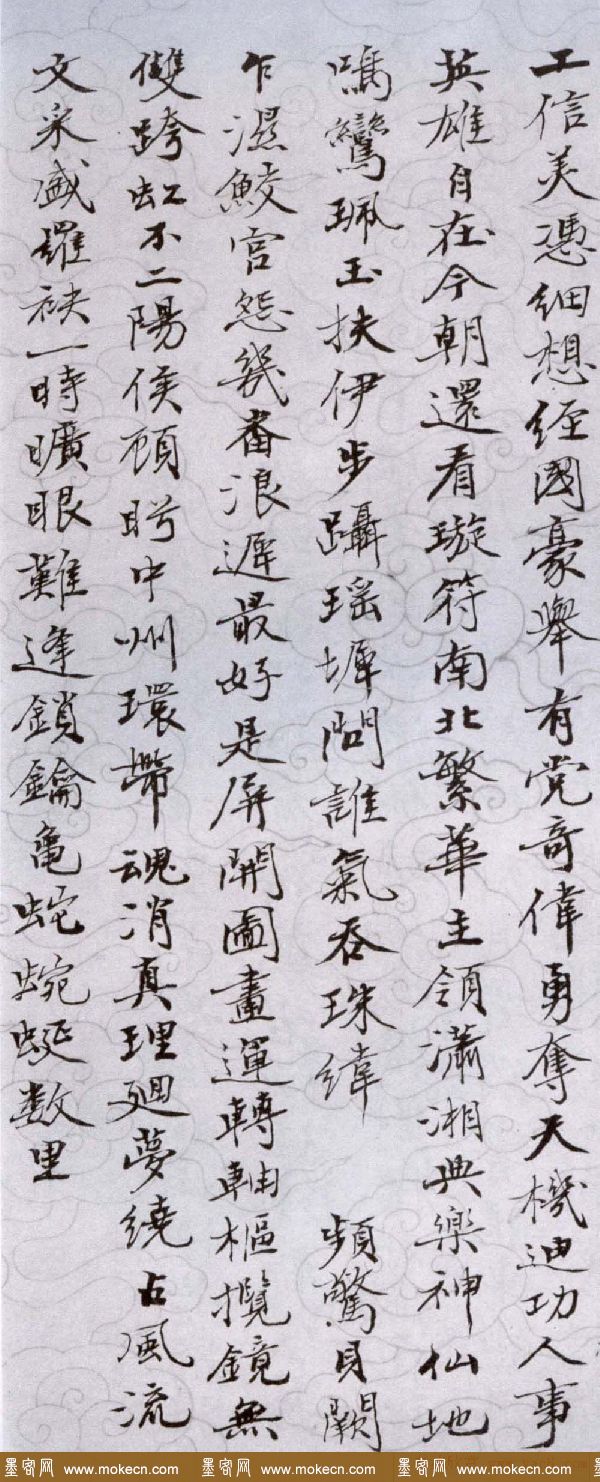 工信美憑細想經國豪舉有党奇偉勇奪天機迪功人事
英雄自在今朝還看璇符南北繁華主領瀟湘典樂神仙地
嘱鸞珮玉扶伊步躡瑶墀問誰氣吞珠緯　頻驚貝闕
乍濕鮫宮怨幾番浪遲最好是屏開圖畫運轉軸樞攬鏡無
雙跨虹不二陽侯顧眄中州環帶魂消真理廻夢繞占風流
文采盛羅袂一時曠眼難逢鎖鑰亀蛇蜿蜒数里
墨客网 www.mokecn.com 墨客网 www.mokecn.com 墨客网 www.mokecn.com